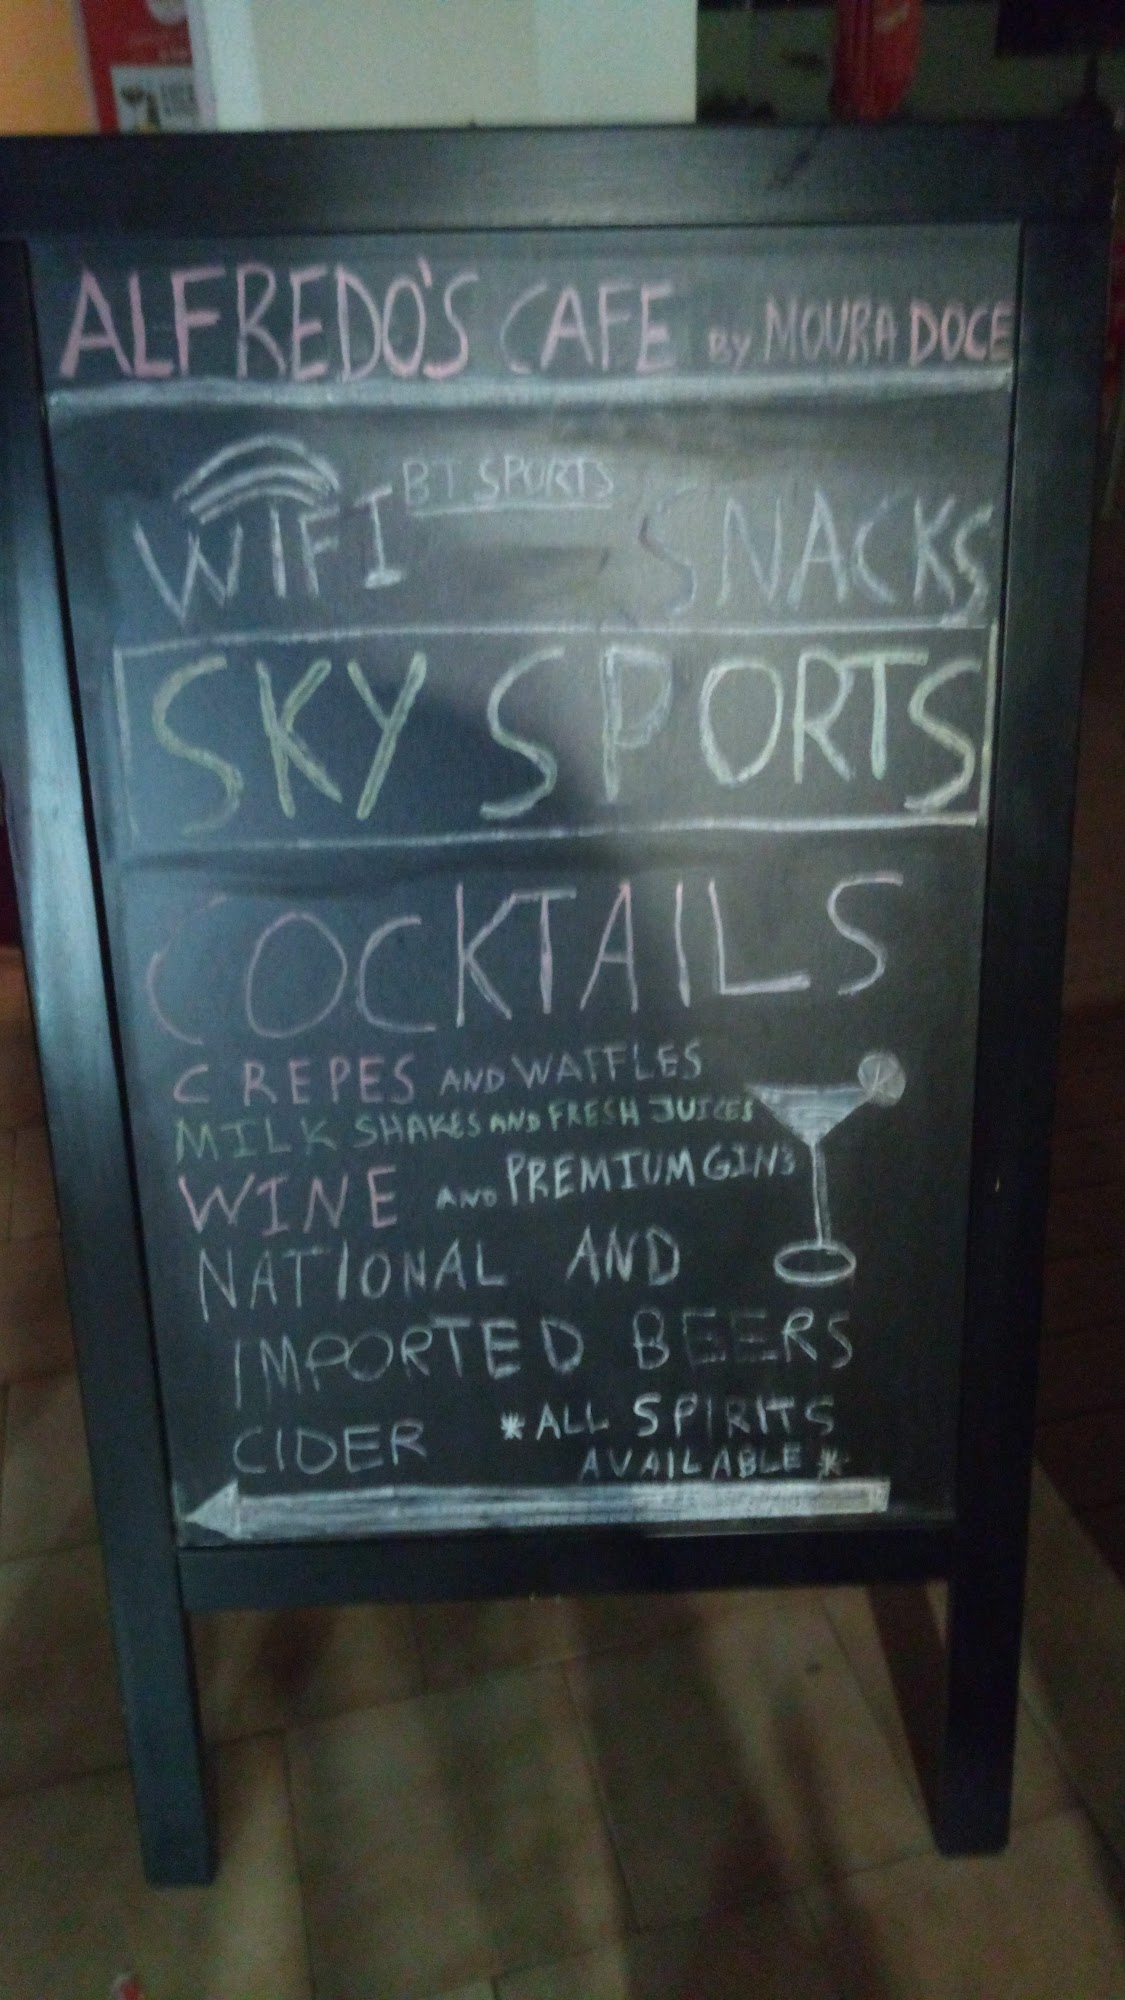 ALFREDO'S CAFE BY MOURA DOCE
WIFI BT SPORTS SNACKS
SKY SPORTS
COCKTAILS
CREPES AND WAFFLES
MILK SHAKES AND FRESH JUICES
WINE AND PREMIUM GINS
NATIONAL AND
IMPORTED BEERS
CIDER *ALL SPIRITS
AVAILABLE*